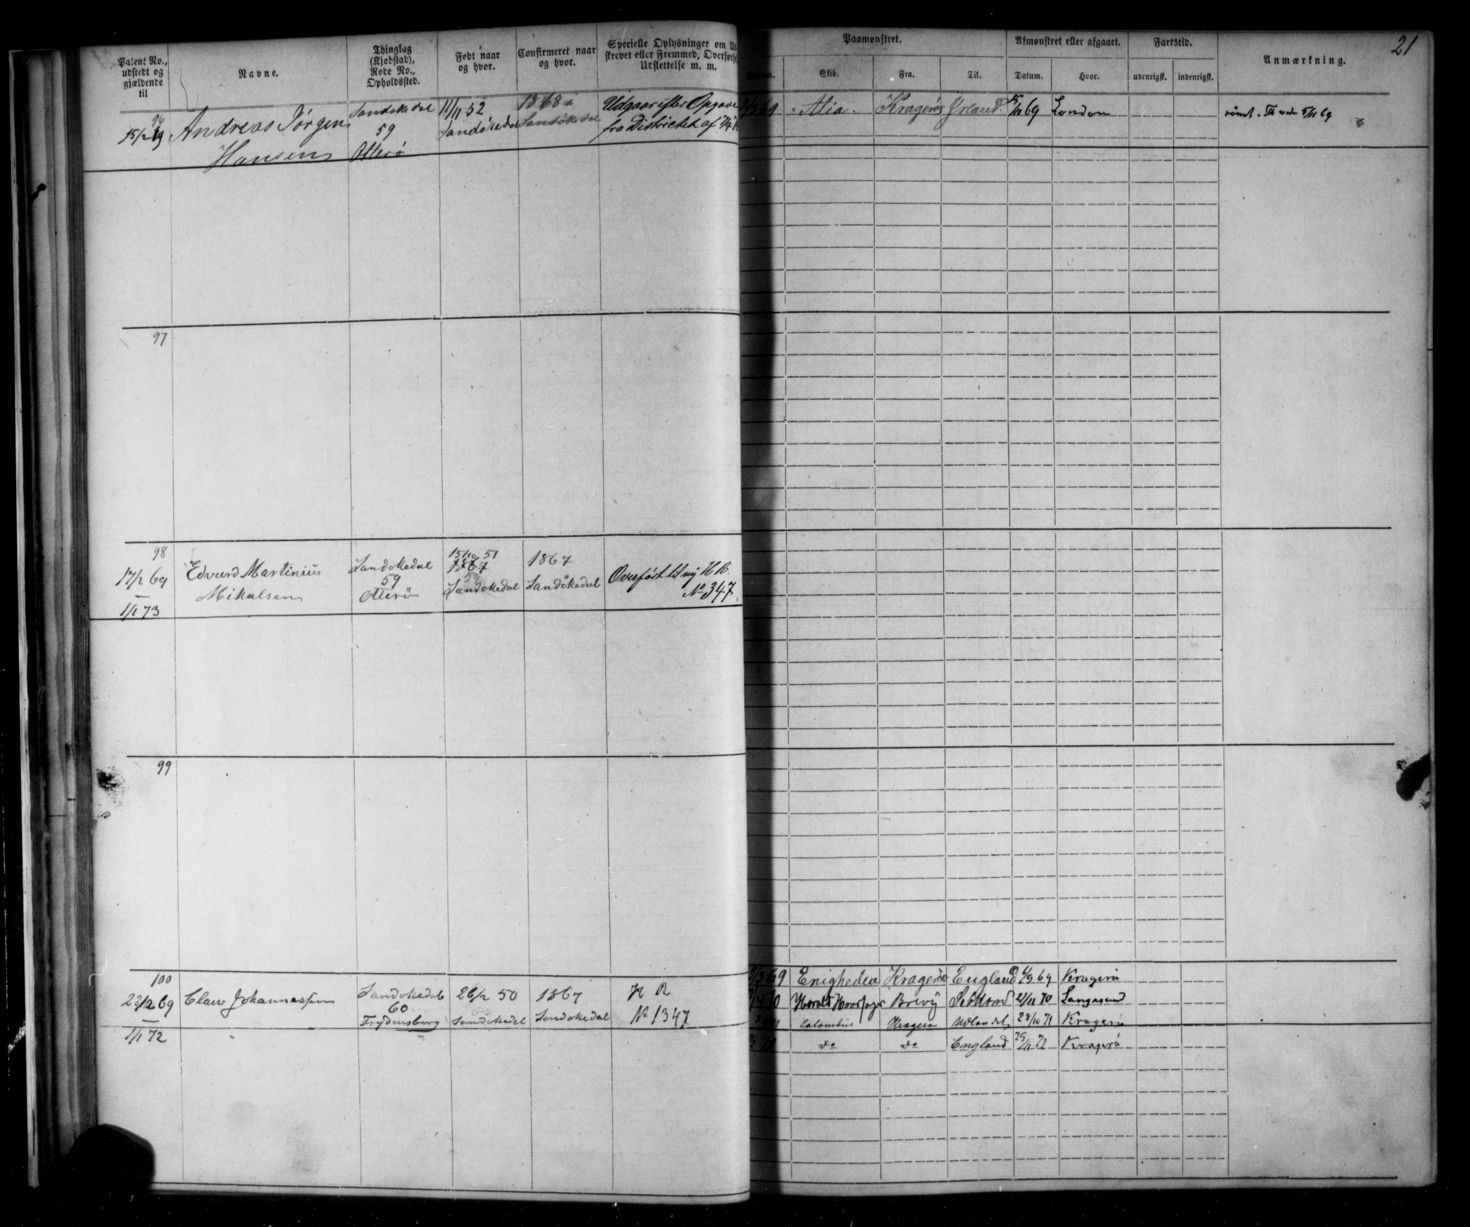 21
Patent No., udstedt og gjældende til
Navne.
Thinglag (Kjøbstad), Rode No., Opholdssted.
Født naar og hvor.
Confirmeret naar og hvor.
Specielle Oplysninger om
Udslettelse m. m.
Paamønstret.
Skib.
Fra.
Til.
Afmønstret eller afgaaet.
Datum.
Hvor.
Fartstid.
udenrigsk.
indenrigsk.
Anmærkning.
96
15/2 69
Andreas Jørgen
Hansen
Sandøkedal
59
Otterø
11/11 52
Sandøkedal
1868
Sandøkedal
Udgaar efter Opgave
fra Districtet af
Alia
Kragerø
69
London
rømt
97
98
17/2 69
1/1 73
Edvard Martinius
Mikalsen
Sandøkedal
59
Otterø
15/10 51
Sandøkedal
1867
Sandøkedal
Overført til ny H. R.
No 347.
99
100
23/2 69
1/1 72
Claus Johannessen
Sandøkedal
60
Frydensborg
26/2 50
Sandøkedal
1867
Sandøkedal
H R
No 1347
Enigheden Kragerø England 69 Kragerø
Harald Haarfager Brevig 21/11 70 Langesund
Columbus Kragerø Udlandet 28/10 71 Kragerø
do do England Kragerø